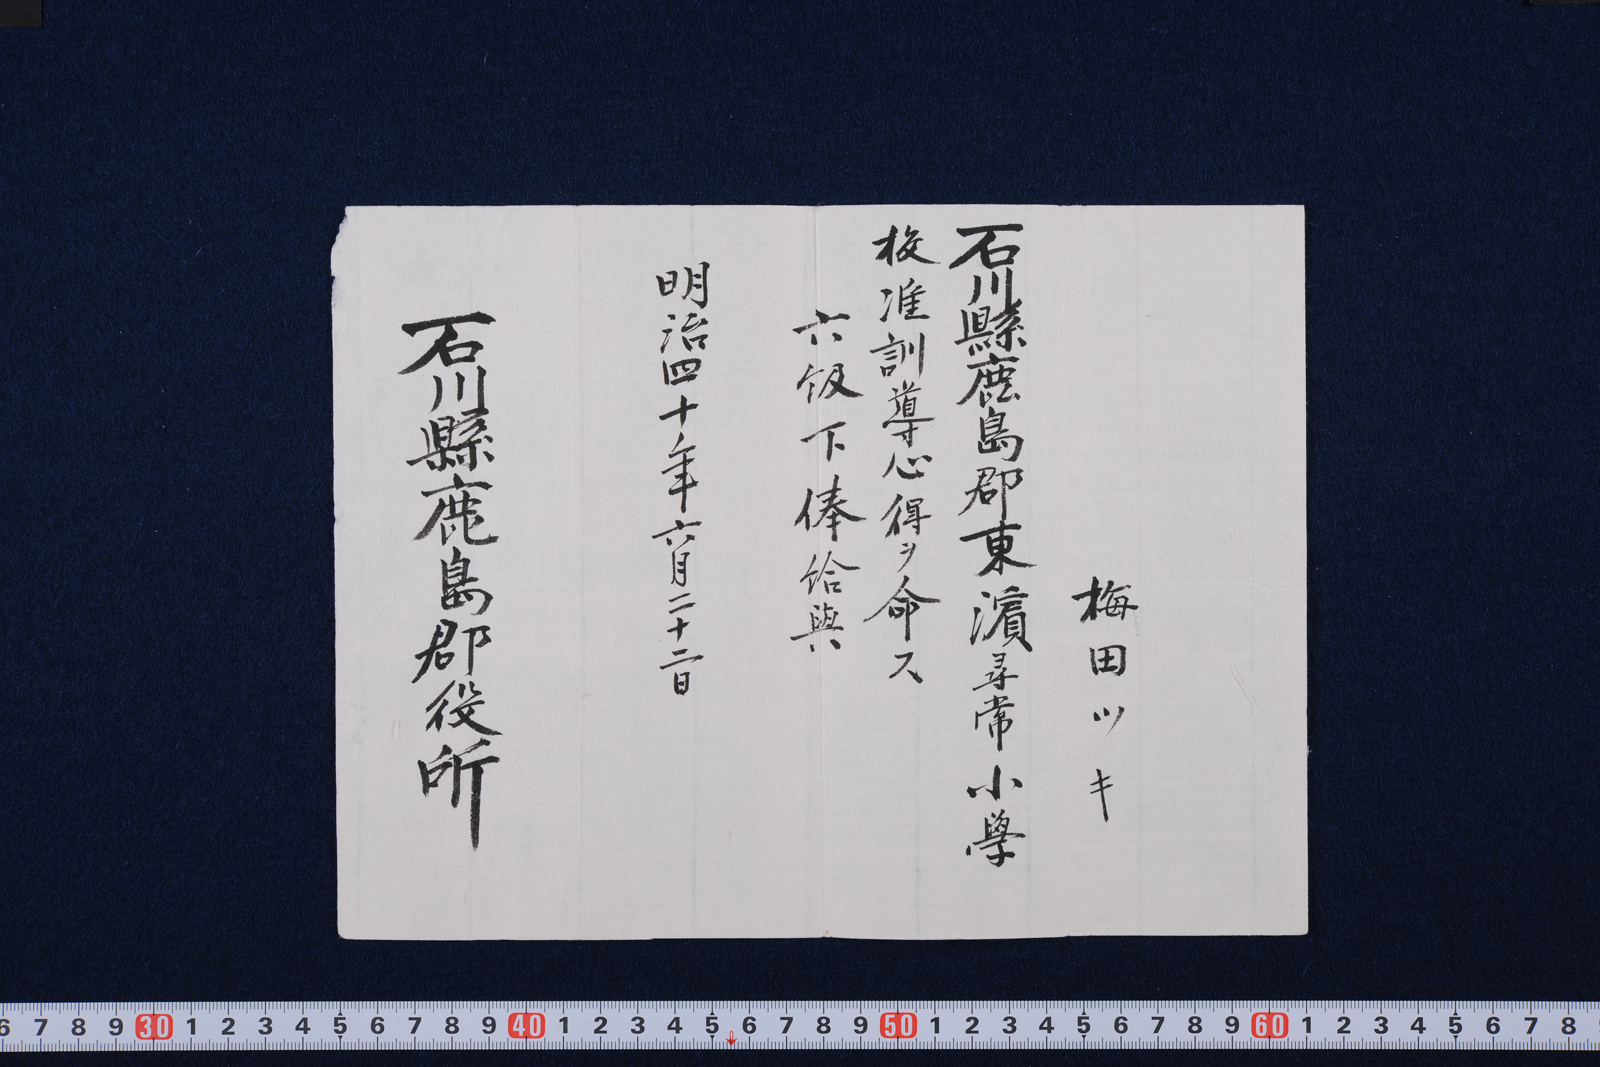 梅田ツキ
石川縣鹿島郡東濵尋常小學
校准訓導心得ヲ命ス
六級下俸給與
明治四十年六月二十二日
石川縣鹿島郡役所
6 7 8 9 30 1 2 3 4 5 6 7 8 9 40 1 2 3 4 5 6 7 8 9 50 1 2 3 4 5 6 7 8 9 60 1 2 3 4 5 6 7 8